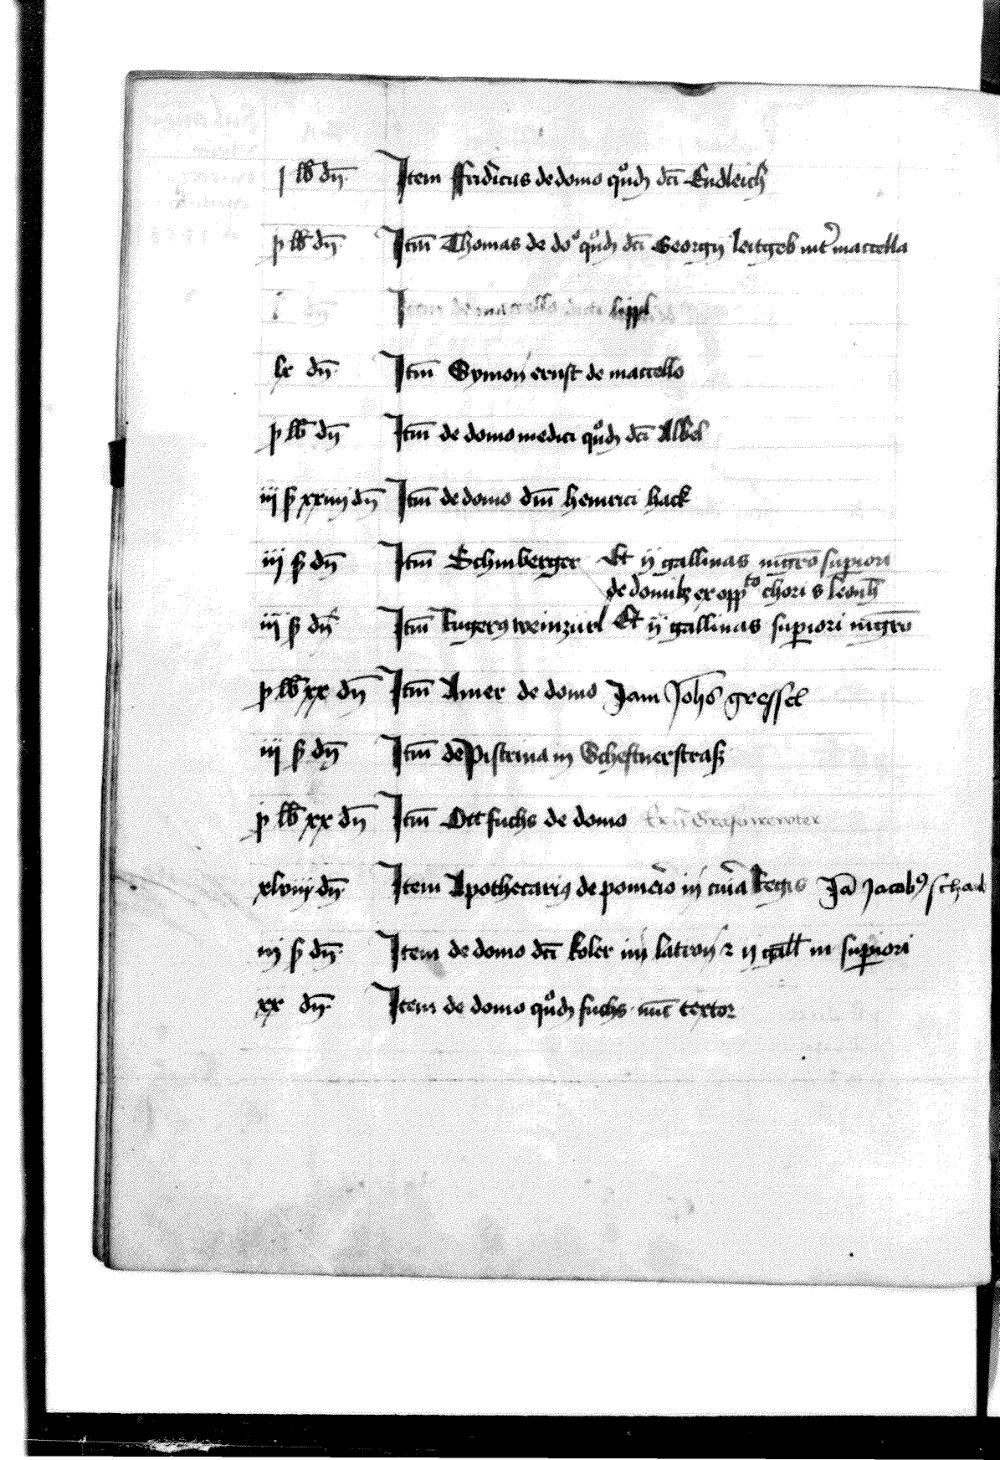 j lb dn Item ffridicus de domo quodam dicti Endleich
j lb dn Itm Thomas de do quodam dicti Georgii leitgeb int macella
j dn Item de macello dicti lippl
lx dn Itm Symon ernst de macello
j lb dn Itm de domo medici quodam dicti Albel
iij ß xxiiij dn Itm de domo dni heinrici hack
iij ß dn Itm Schinberger Et ij gallinas nigro supiori
de domibz ex opp to chori s leonh
iij ß dn Itm Rugerus weinzurl Et ij gallinas supiori nigro
j lb xx dn Itm Amer de domo Jam Johs gressel
iij ß dn Itm de Pistrina in Scheftnerstrass
j lb xx dn Itm Ott fuchs de domo
xlviij dn Item Apothecarius de pomerio in curia Regis Ja Jacobus schack
iij ß dn Item de domo dicti koler iuxta latron et ij gall in supiori
xx dn Item de domo quodam fuchs nunc textor